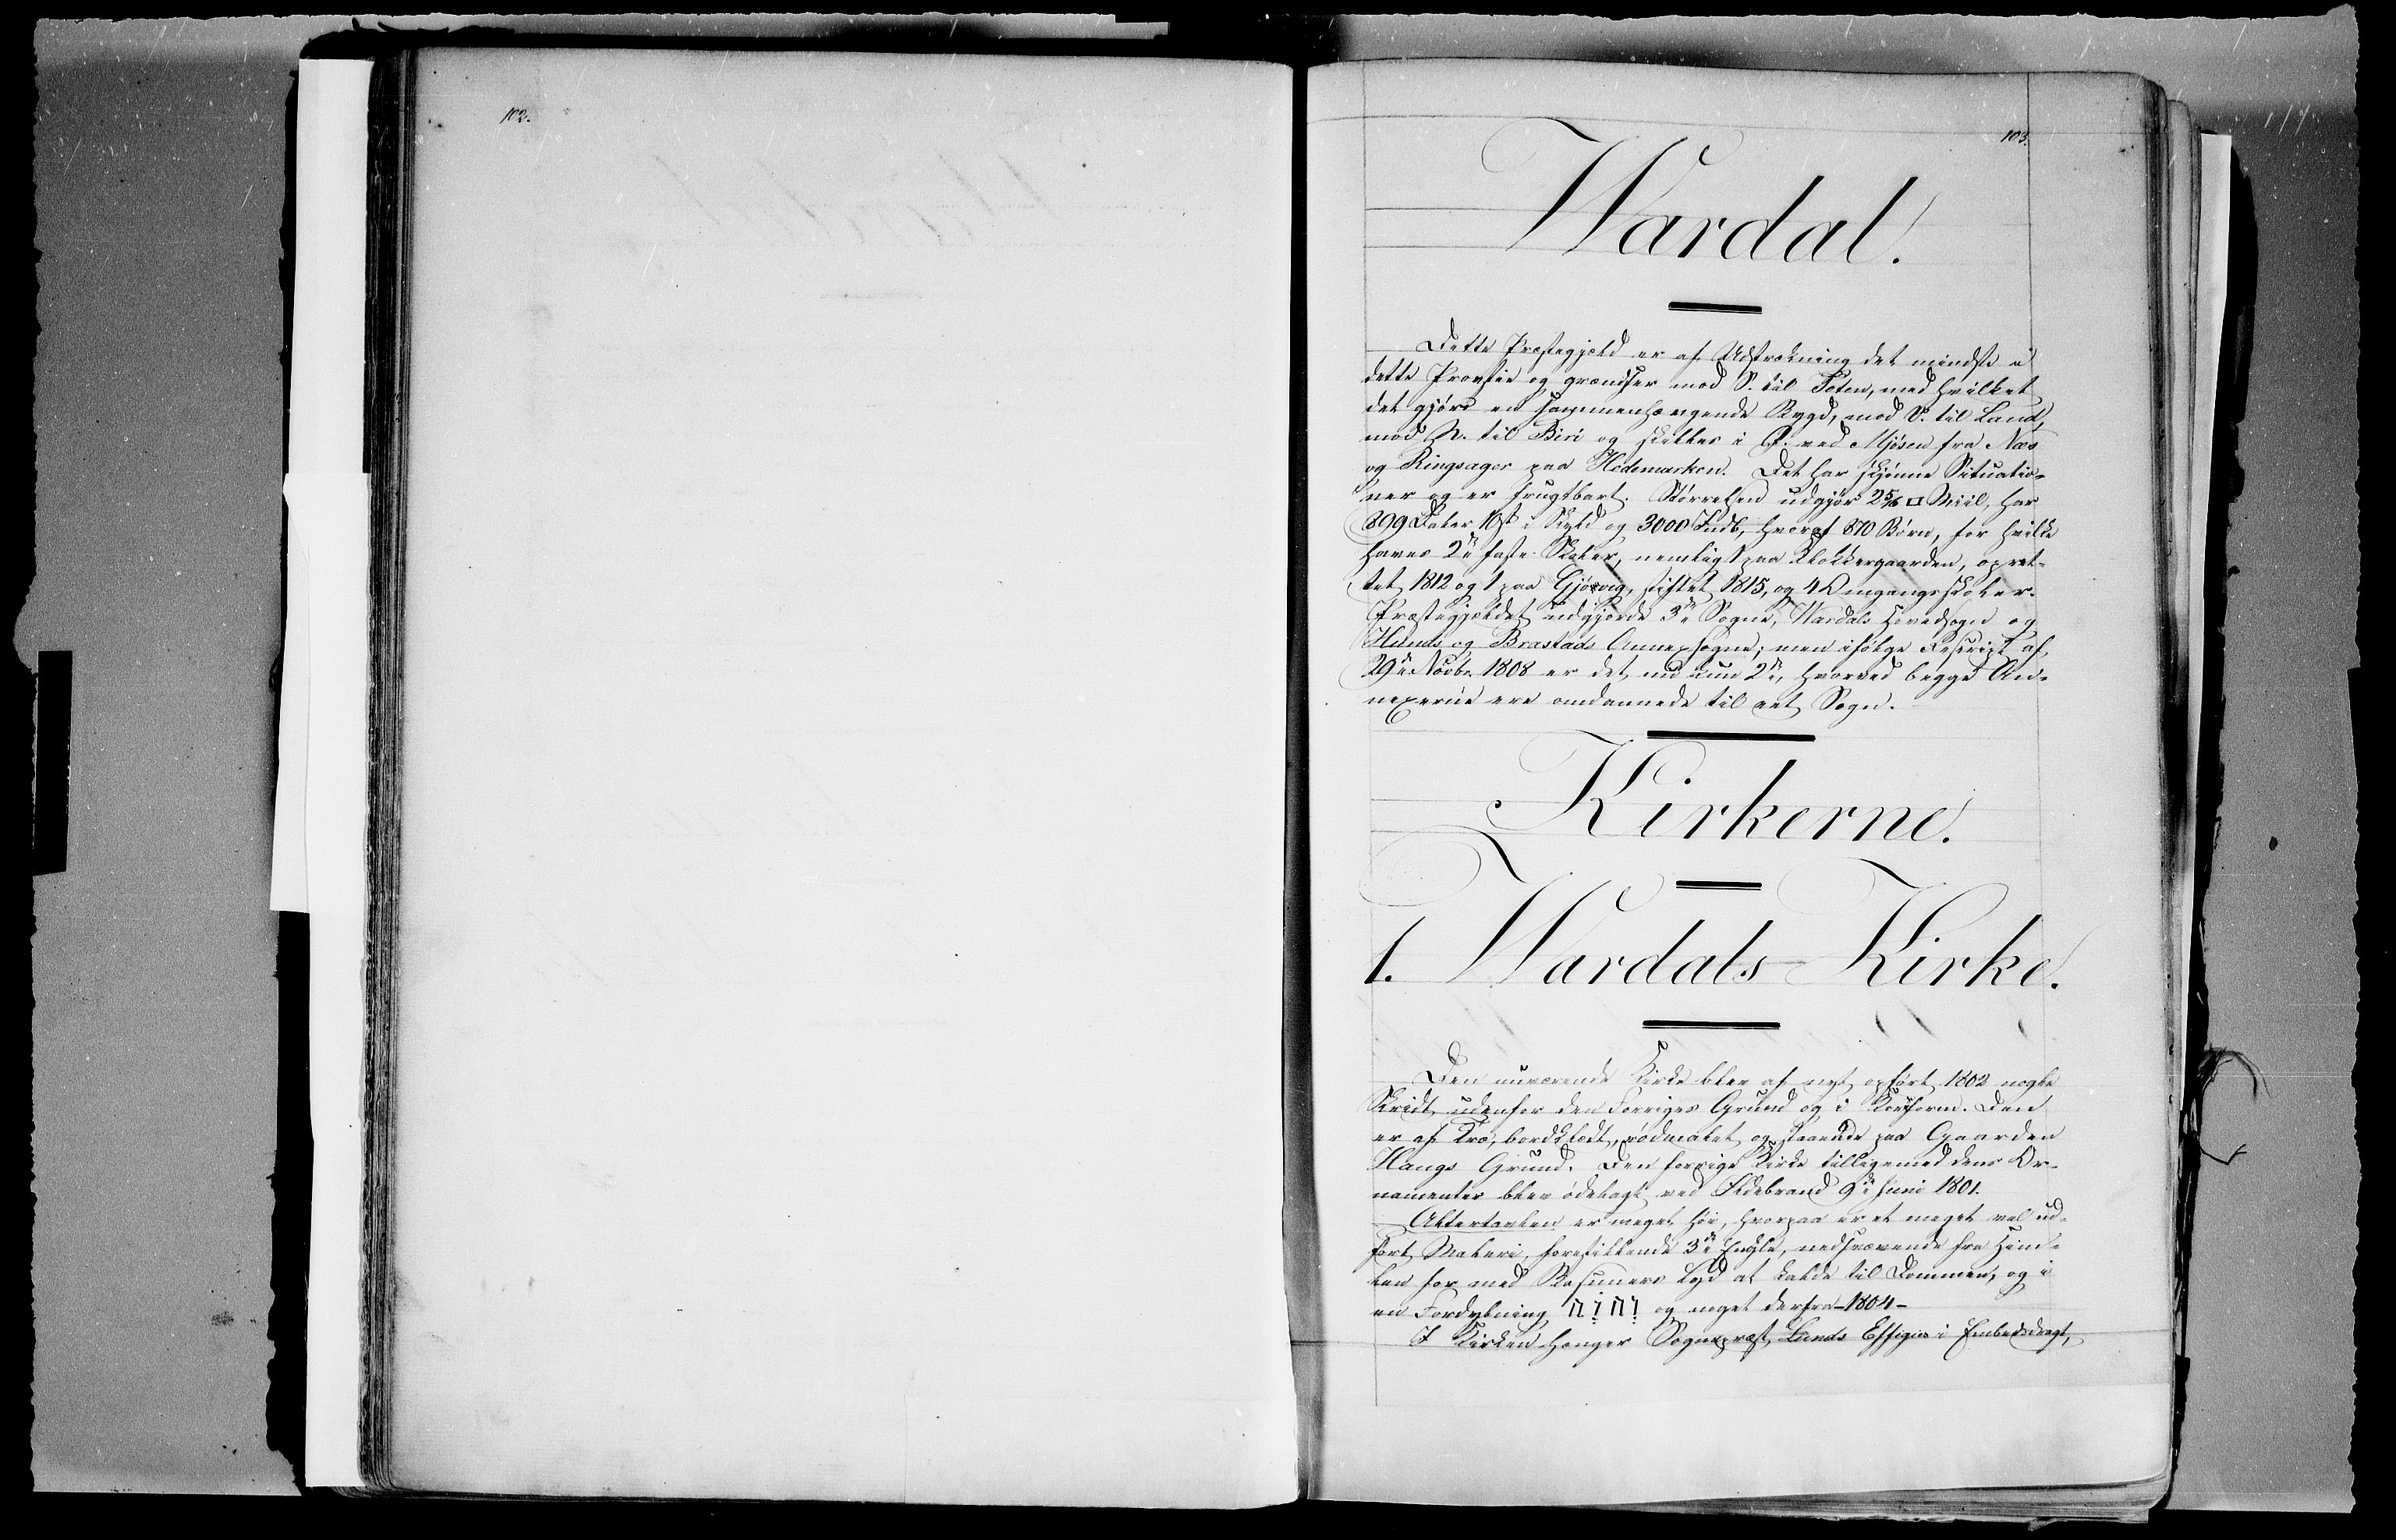 102.
103.
Wardal.
Dette Præstegjæld er af Udstrækning det mindste i
dette Provstie og grændser mod S. til Toten, med hvilket
det gjør en sammenhængende Bygd, mod V. til Land,
mod N. til Biri og skilles i Ø. ved Mjösen fra Næs
og Ringsager paa Hedemarken. Det har skjønne Situatio-
ner og er frugtbart. Størrelsen udgjør 2 5/6 □ Miil, har
899 Daler 10 i Skyld og 3000 Indb, hvoraf 870 Børn, for hvilke
haves 2de faste Skoler, nemlig 1 paa Klokkergaarden, opret-
tet 1812 og 1 paa Gjøvig, stiftet 1815, og 4 Omgangsskoler.
Præstegjældet udgjorde 3de Sogne, Wardals Hovedsogn og
Hunds og Brastads Annexsogne; men ifølge Rescript af
29de Novbr. 1808 er det nu kun 2de, hvorved begge An-
nexerne ere omdannede til eet Sogn.
Kirkerne.
1. Wardals Kirke.
Den nuværende Kirke blev af nyt opført 1802 nogle
Skridt udenfor den Forriges Grund og i Korsform. Den
er af Træ, bordklædt, rødmalet og staaende paa Gaarden
Haugs Grund. Den forrige Kirke tilligemed dens Or-
namenter blev ødelagt ved Ildebrand 9de Juni 1801.
Altertavlen er meget høi, hvorpaa er et meget vel ud-
ført Maleri, forestillende 3de Engle, nedsvævende fra Him-
len for med Basuners Lyd at kalde til Dommen, og i
en Fordybning יהוה og noget derfra - 1804 -
I Kirken hænger Sognepræst Lunds Effigies i Embedsdragt,